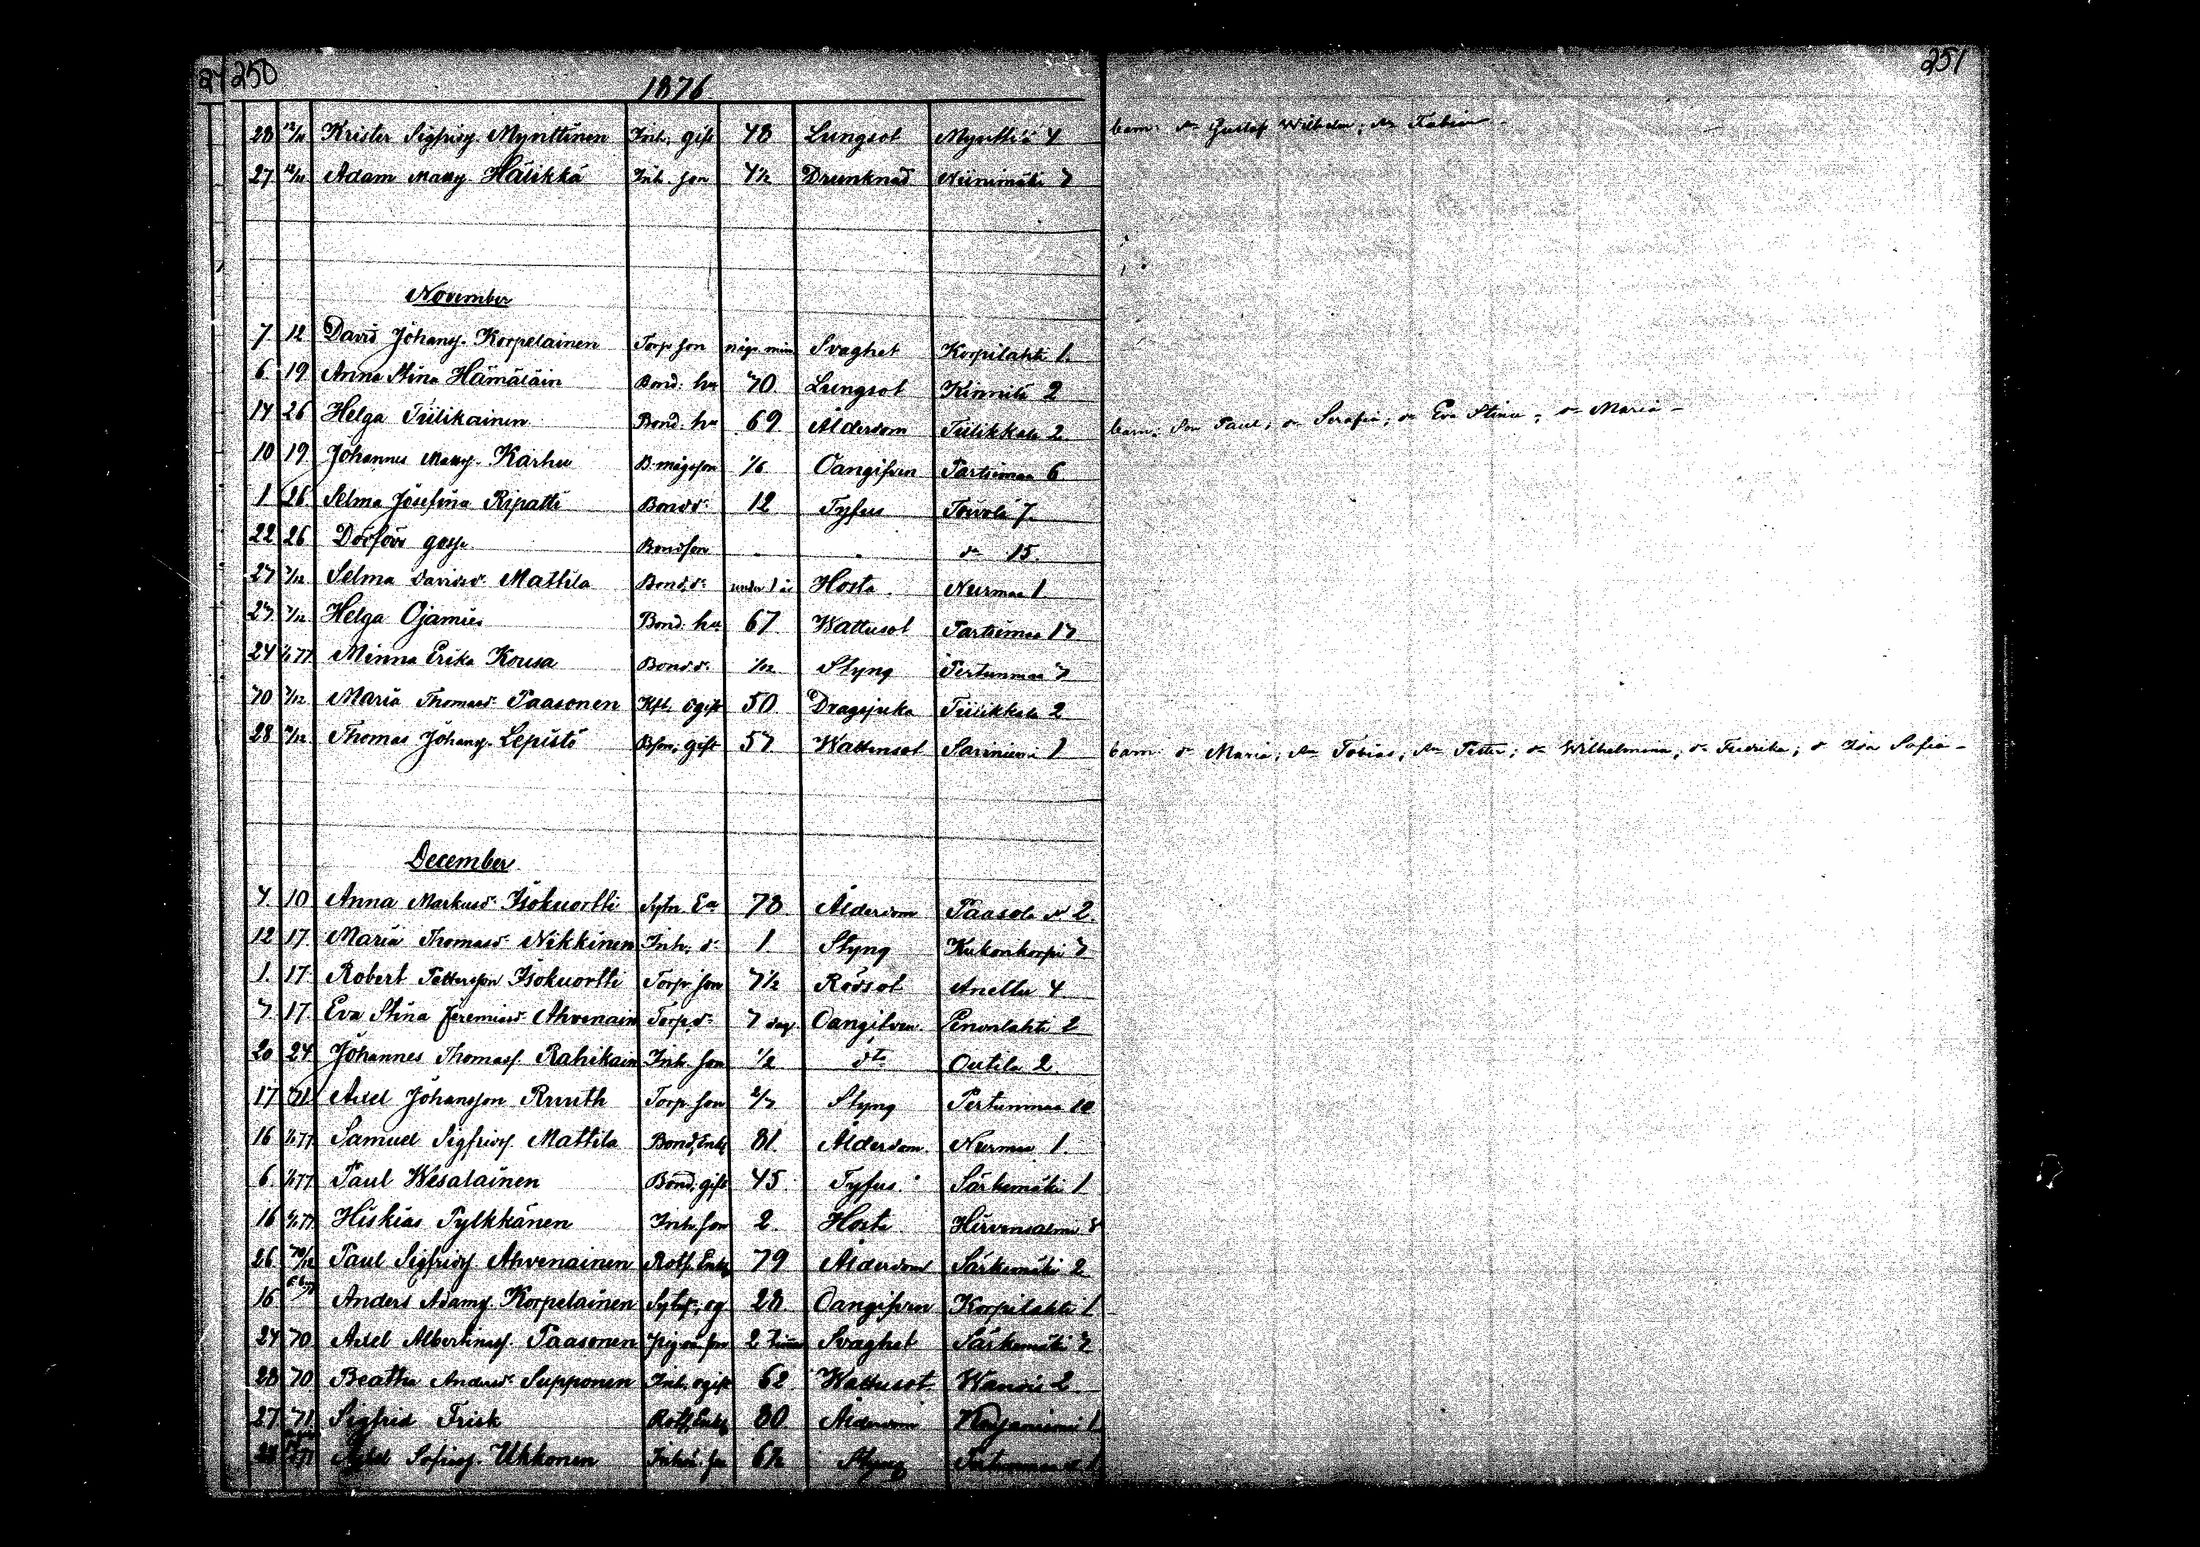 250
1876.
251
28 12/11 Krister Sigfridss. Mynttinen Inh. gift 48 Lungsot Mynttilä 4 barn: dr Gustaf Wilhelm; dr Tobias -
27 12/11 Adam Matss. Häikkä Inh. son 4½ Drunknad Niinimäki 7
November
7 12 David Johanss. Korpelainen Torp. son några min Svaghet Korpilahti 1.
6 19 Anna Stina Hämäläin Bond. hu 70 Lungsot Kinnilä 2
14 26 Helga Tiilikainen Bond. hu 69 Ålderdom Tiilikkala 2 barn: Son Paul; dr Serafia; dr Eva Stina; dr Maria -
10 19 Johannes Matss. Karhu B. mågs son 1/6 Oangifven Partsimaa 6
1 26 Selma Josefina Ripatti Bond. dr 12 Tyfus Toivola 7.
22 26 Dödfödt gosse Bondson do 15.
27 3/12 Selma Davidsdr Mattila Bond. dr under 1 år Hosta Nurmaa 1
27 3/12 Helga Ojamies Bond. hu 67 Wattusot Partsimaa 17
24 1/1 77 Minna Erika Kousa Bond. dr 1/12 Styng Pertunmaa 7
Maria Thomasdr Paasonen ogift 50 Dragsjuka Tiilikkala 2
28 Thomas Johanss. Lepistö Bson, gift 57 Wattusot Sarvniemi 1 barn: dr Maria; sn Tobias; sn Petter; dr Wilhelmina; dr Fredrika; dr Ida Sofia -
December
4 10 Anna Markusdr Isokuortti Sytn. Ea 78 Ålderdom Paasola No 2.
12 17 Maria Thomasdr Nikkinen Inh. dr 1 Styng Kukonkorpi 7
1 17 Robert Pettersson Isokuortti Torp. son 7½ Rödsot Anettu 4
7 17 Eva Stina Jeremiasdr Ahvenain Torp. dr 7 dag. Oangifven Penonlahti 2
20 24 Johannes Thomass. Rahikain Inh. son ½ dto Outila 2
17 Axel Johansson Ruuth Torp. son Styng Pertunmaa 10
16 1/1 77 Samuel Sigfridss Mattila Bond, Enkl 81. Ålderdom. Nurmaa 1.
6 1/1 77 Paul Wesalainen Bond, gift 45 Tyfus Särkemäki 1
16 Hiskias Pylkkänen Inh. son 2 Hosta Hirvensalmi 8
26 Paul Sigfridss Ahvenainen Rotf. Enkl 79 Ålderdom Särkemäki 2
16 Anders Adamss. Korpelainen Sytn., og 28 Oangifven Korpilahti 1
24 Axel Albertinass. Paasonen pig. oä. son 2 Svaghet Särkemäki 7
28 Beatha Andersdr Supponen Inh., ogift 62 Wattusot Wanois 2
27 Sigfrid Frisk Rotf, Enkl 80 Ålderdom 1
28 Sofiass. Ukkonen 6½ Styng Pertunmaa